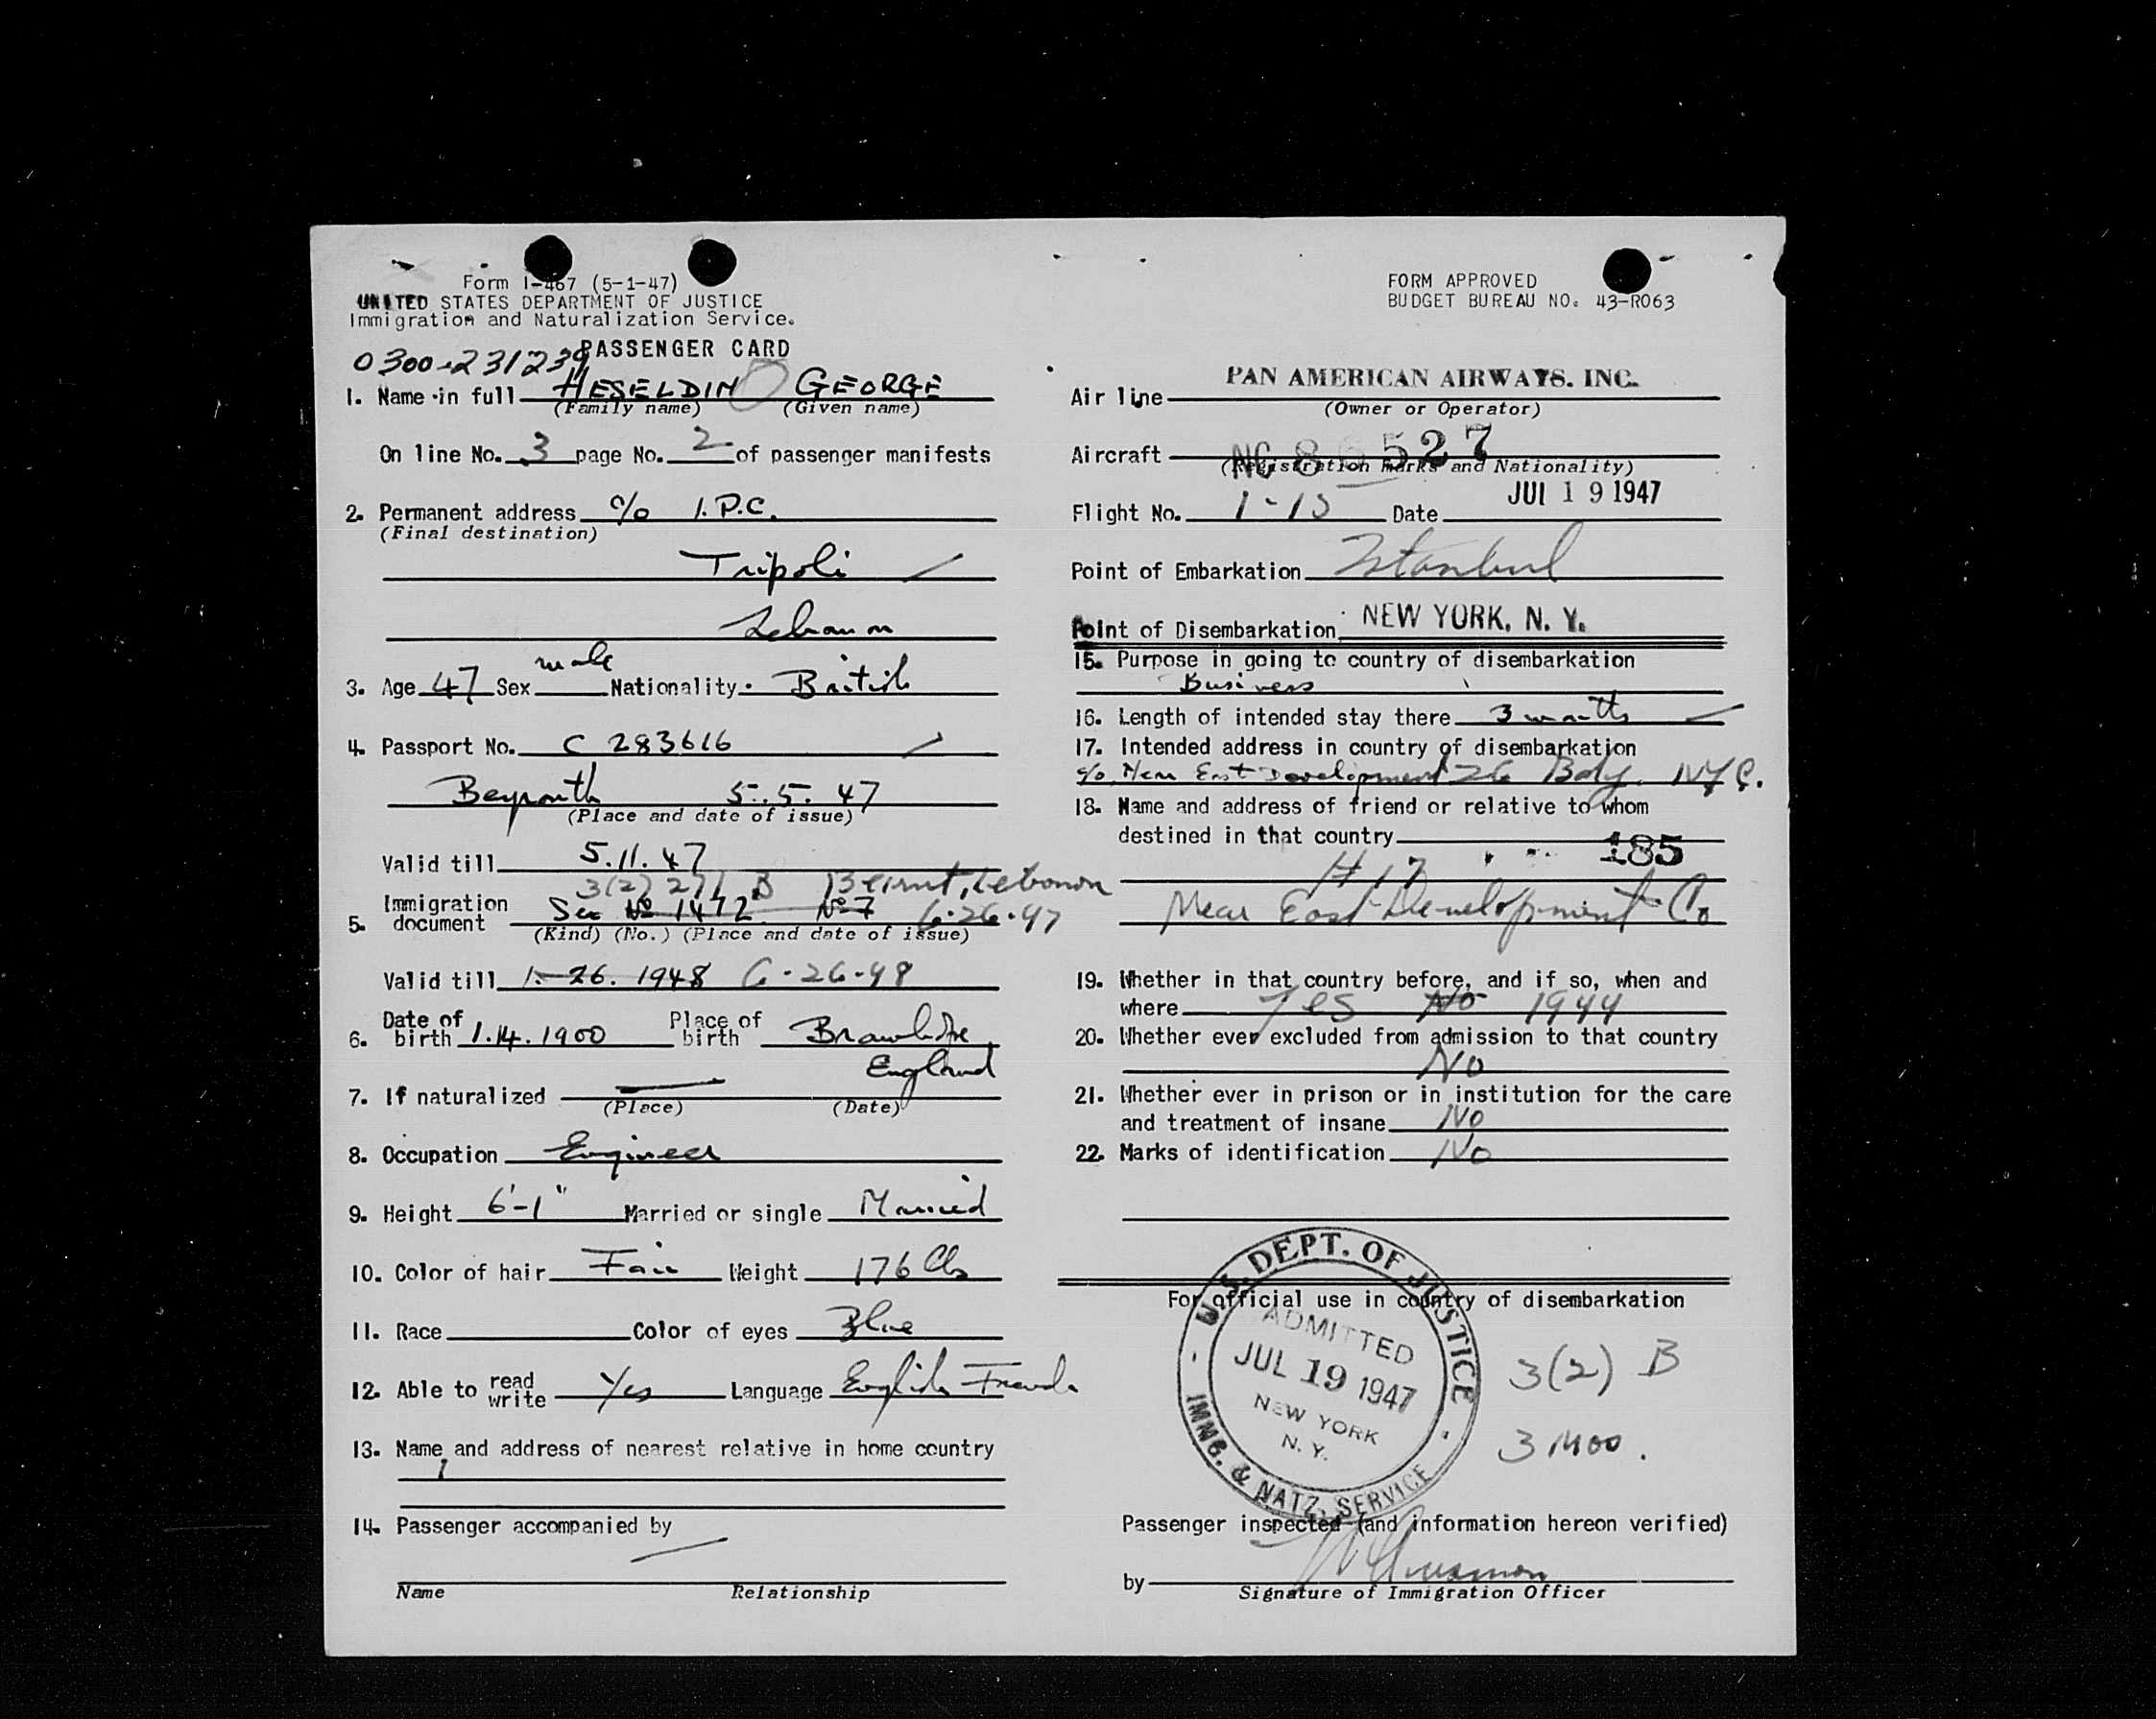 Form I-467 (5-1-47)
UNITED STATES DEPARTMENT OF JUSTICE
Immigration and Naturalization Service.
PASSENGER CARD
0300-231239
1. Name in full HESELDIN GEORGE
(Family name) (Given name)
On line No. 3 page No. 2 of passenger manifests
2. Permanent address % I.P.C.
(Final destination)
Tripoli
Lebanon
3. Age 47 Sex male Nationality. British
4. Passport No. C 283616
Beyrouth 5.5.47
(Place and date of issue)
Valid till 5.11.47
3(2) 271 B Beirut, Lebanon
5. Immigration document Sec No 1472 No 7 6-26-47
(Kind) (No.) (Place and date of issue)
Valid till 1-26. 1948 6-26-48
6. Date of birth 1.14.1900 Place of birth
England
7. If naturalized
(Place) (Date)
8. Occupation Engineer
9. Height 6'-1" Married or single Married
10. Color of hair Fair Weight 176 lbs
11. Race Color of eyes Blue
12. Able to read write Yes Language English French
13. Name and address of nearest relative in home country
14. Passenger accompanied by
Name Relationship
FORM APPROVED
BUDGET BUREAU NO. 43-R063
Air line PAN AMERICAN AIRWAYS. INC.
(Owner or Operator)
Aircraft NC 86527
(Registration Marks and Nationality)
Flight No. 1-15 Date JUL 19 1947
Point of Embarkation Istanbul
Point of Disembarkation NEW YORK, N. Y.
15. Purpose in going to country of disembarkation
Business
16. Length of intended stay there 3 months
17. Intended address in country of disembarkation
c/o Near East Development 26 Bdy. NYC.
18. Name and address of friend or relative to whom
destined in that country
185
# 17
Near East Development Co
19. Whether in that country before, and if so, when and
where Yes No 1944
20. Whether ever excluded from admission to that country
No
21. Whether ever in prison or in institution for the care
and treatment of insane No
22. Marks of identification No
For official use in country of disembarkation
U.S. DEPT. OF JUSTICE
ADMITTED
JUL 19 1947
NEW YORK
N. Y.
IMMG. & NATZ. SERVICE
3(2) B
3 mos.
Passenger inspected (and information hereon verified)
by
Signature of Immigration Officer